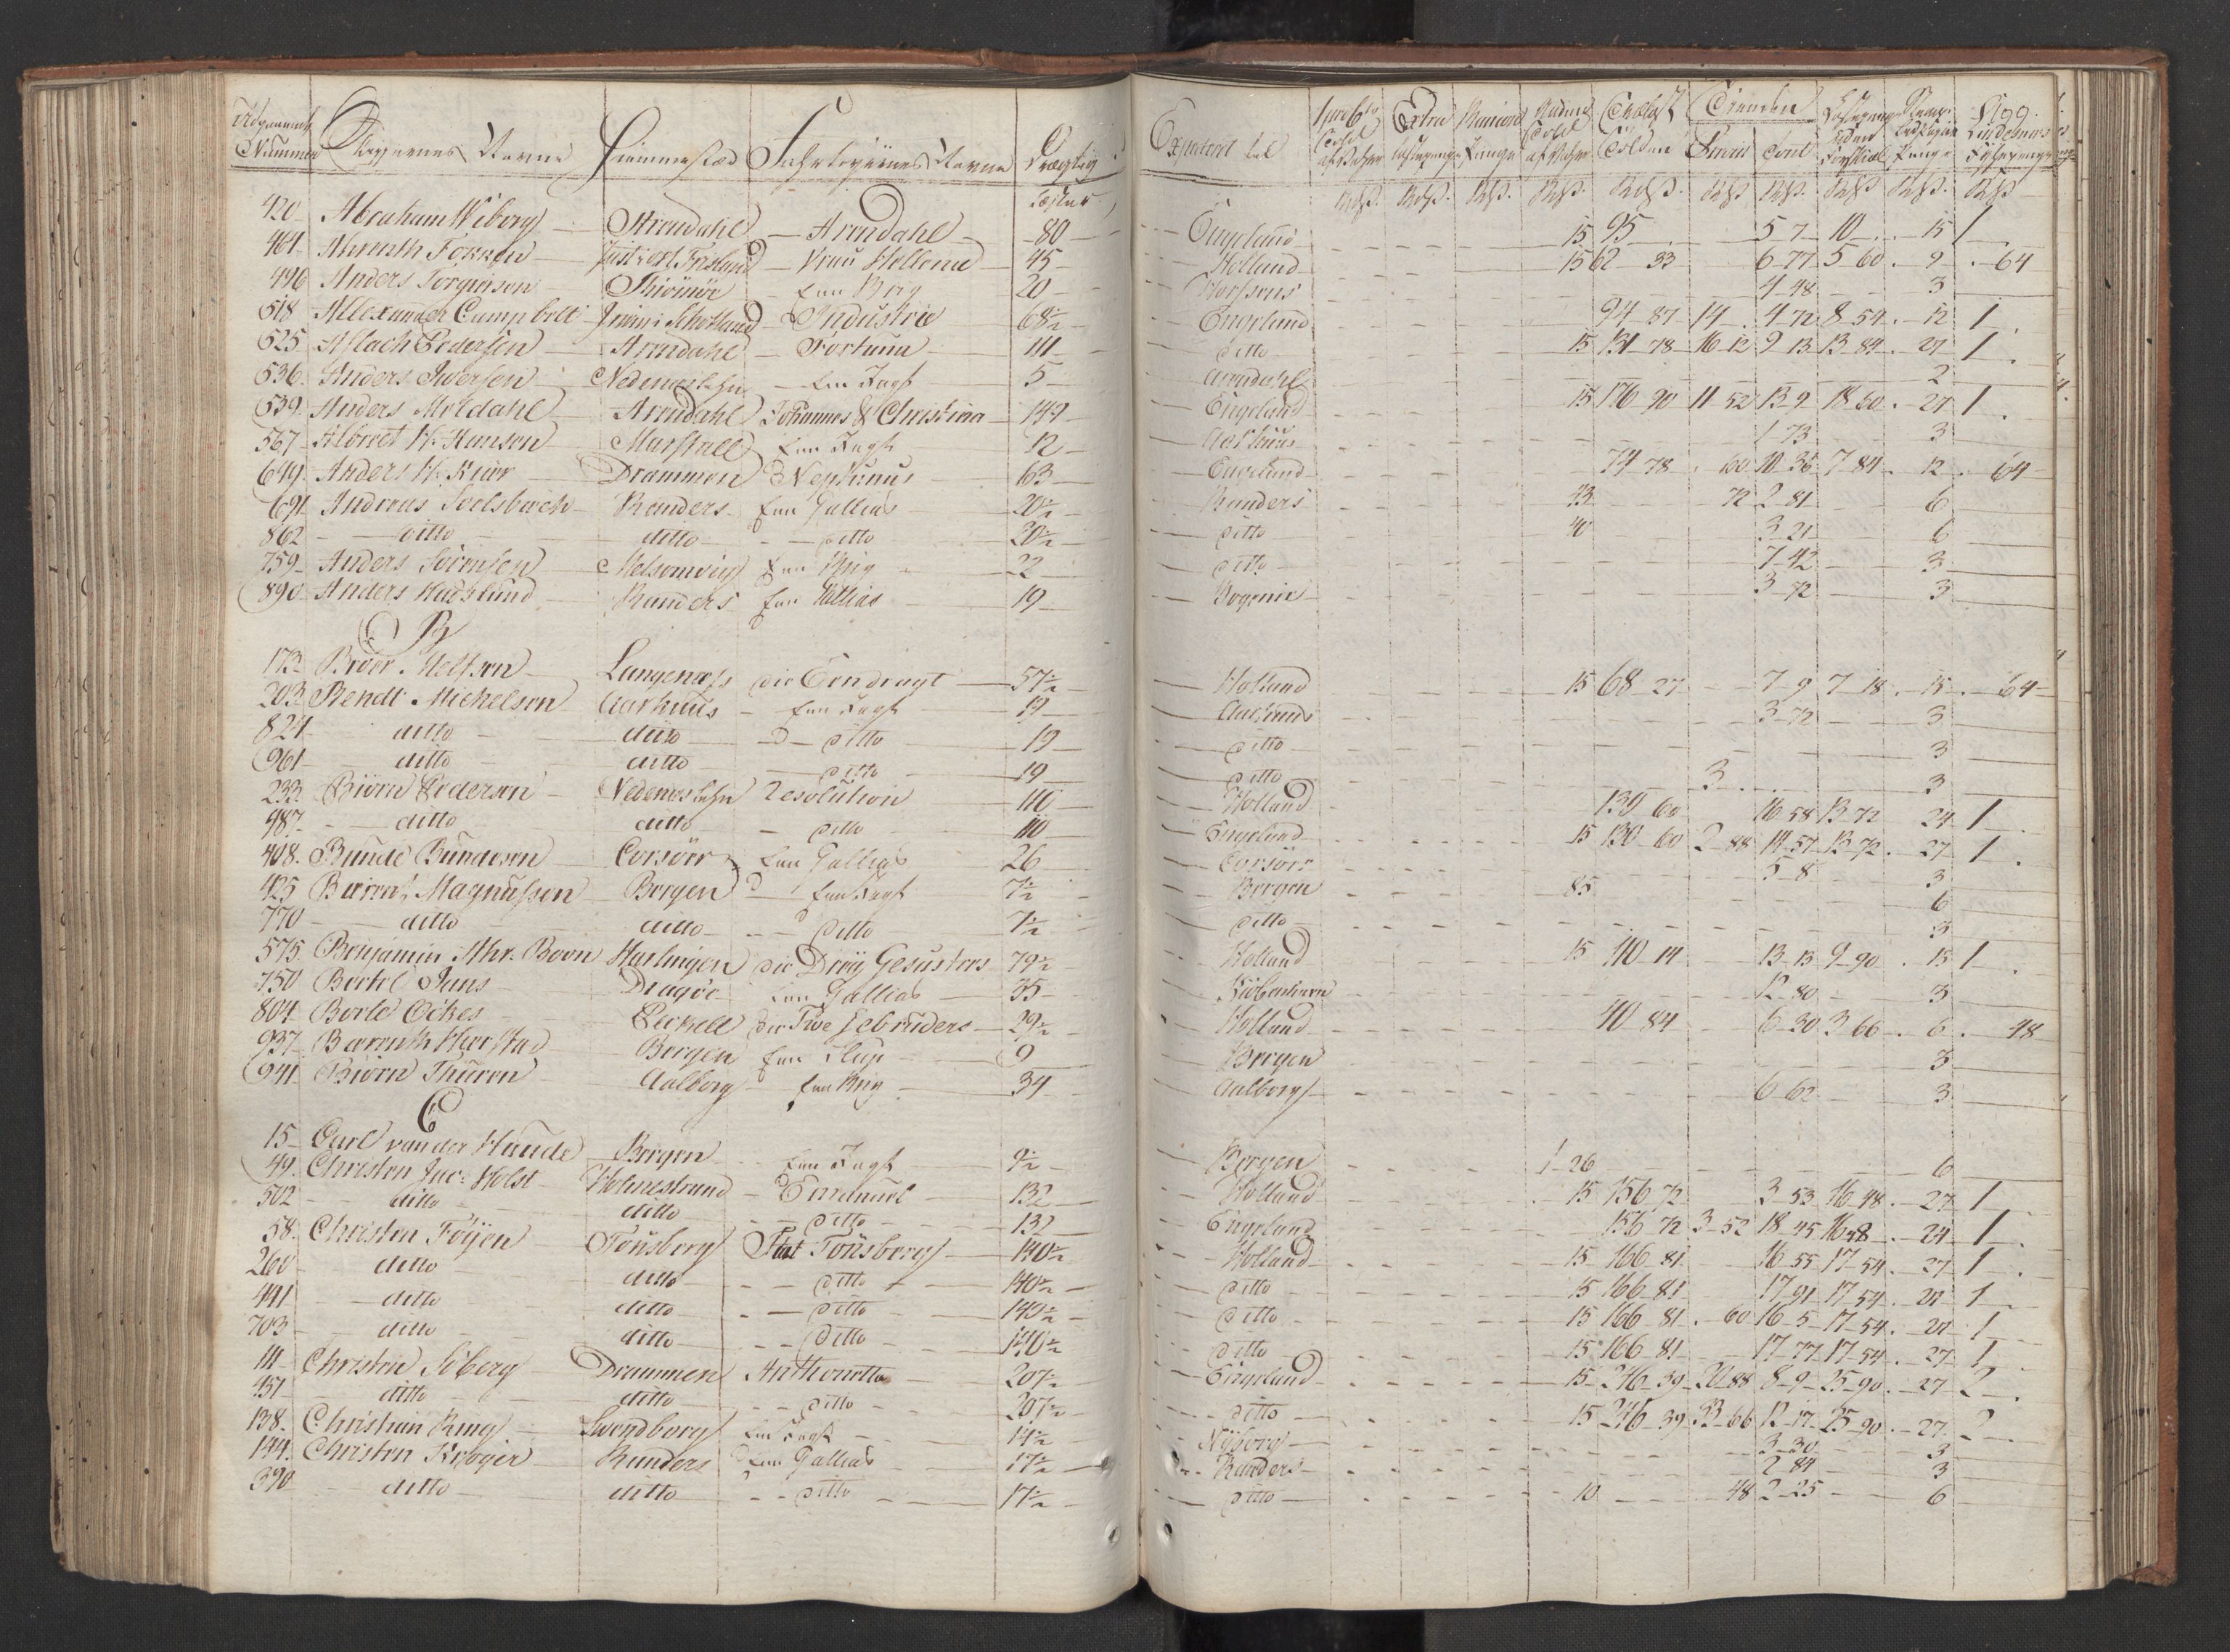 Udgaaende Nummer Skippernes Navne Hiemmestæd Fahrtøyernes Navne Drægtighed Læster Expederet til
420 Abraham Wiborg Arendahl Arendahl 80 Engeland 15 95 5 7 10 15 1
461 Ahrenth Fokken Vrau Hellena 45 Holland 15 62 33 6 77 5 60 9 64
496 Anders Torgersen Een Brig 20 Horsens 4 48 3
518 Allexander Campbell Schotland Industrie 68½ Engeland 94 87 14 4 72 8 54 12 1
525 Aslach Pedersen Arendahl Fortuna 111 ditto 15 131 78 16 12 9 13 13 84 27 1
536 Anders Iversen Nedeneslehn Een Jagt 5 Arendahl 2
539 Anders Moldahl Arendahl Johannes & Christina 149 Engeland 15 176 90 11 52 13 9 18 60 27 1
567 Albrect H. Hansen Marstall Een Jagt 12 Aarhuus 1 73 3
649 Anders H. Kiær Drammen Neptunus 63 Engeland 74 78 60 10 36 7 84 12 64
691 Andreas Seelsbach Randers Een Gallias 20½ Randers 43 72 2 81 6
862 ditto ditto ditto 20½ ditto 40 3 21 6
759 Anders Sörensen Melsomvig Een Brig 22 ditto 7 42 3
890 Anders Hadslund Randers Een Gallias 19 3 72 3
B
173 Broer Nelsen Langenæss die Eendragt 57½ Holland 15 68 27 7 9 7 18 15 64
203 Bendt Michelsen Aarhuus Een Jagt 19 Aarhuus 3 72 3
824 ditto ditto ditto 19 ditto 3
961 ditto ditto ditto 19 ditto 3 3
233 Biörn Pedersen Nedeneslehn Resolution 110 Holland 130 60 16 58 13 72 24 1
987 ditto ditto ditto 110 Engeland 15 130 60 2 88 14 57 13 72 27 1
408 Bunde Bundesen Corsöer Een Gallias 26 Corsöer 5 8 3
425 Magnussen Bergen Een Jagt 7½ Bergen 85 6
770 ditto ditto ditto 7½ ditto 3
575 Benjamin Ahr. Boon Harlingen die Drey Gesusters 79½ Holland 15 110 14 13 13 9 90 15 1
750 Bertel Jans Dragöe Een Gallias 35 Kiöbenhavn 12 80 3
804 Borle Ockes Peckell die Twe Gebruders 29½ Holland 40 84 6 30 3 66 6 48
937 Bergen Een Slup 9 Bergen 3
941 Biörn Thuren Aalborg Een Brig 34 Aalborg 6 62 3
C
15 Carl van der Hunde Bergen Een Jagt 9½ Bergen 1 26 6
49 Christen Jac. Holst Holmestrand Emanuel 132 Holland 15 156 72 3 53 16 48 27 1
502 ditto ditto ditto 132 Engeland 156 72 3 52 18 45 16 48 24 1
58 Christen Föyen Tonsberg Stat Tonsberg 140½ Holland 15 166 81 16 55 17 54 27 1
260 ditto ditto ditto 140½ ditto 15 166 81 17 91 17 54 27 1
441 ditto ditto ditto 140½ ditto 15 166 81 60 16 5 17 54 27 1
703 ditto ditto ditto 140½ ditto 15 166 81 17 77 17 54 27 1
111 Christen Siberg Drammen Anthonetta 207½ Engeland 15 246 39 22 88 8 9 25 90 27 2
451 ditto ditto ditto 207½ ditto 15 246 39 33 66 12 17 25 90 27 2
138 Christian Ring Swendborg Een Jagt 14½ Nyborg 3 30 3
144 Christen Kröyer Randers Een Gallias 17½ Randers 2 84 3
390 ditto ditto ditto 17½ ditto 10 48 2 25 6